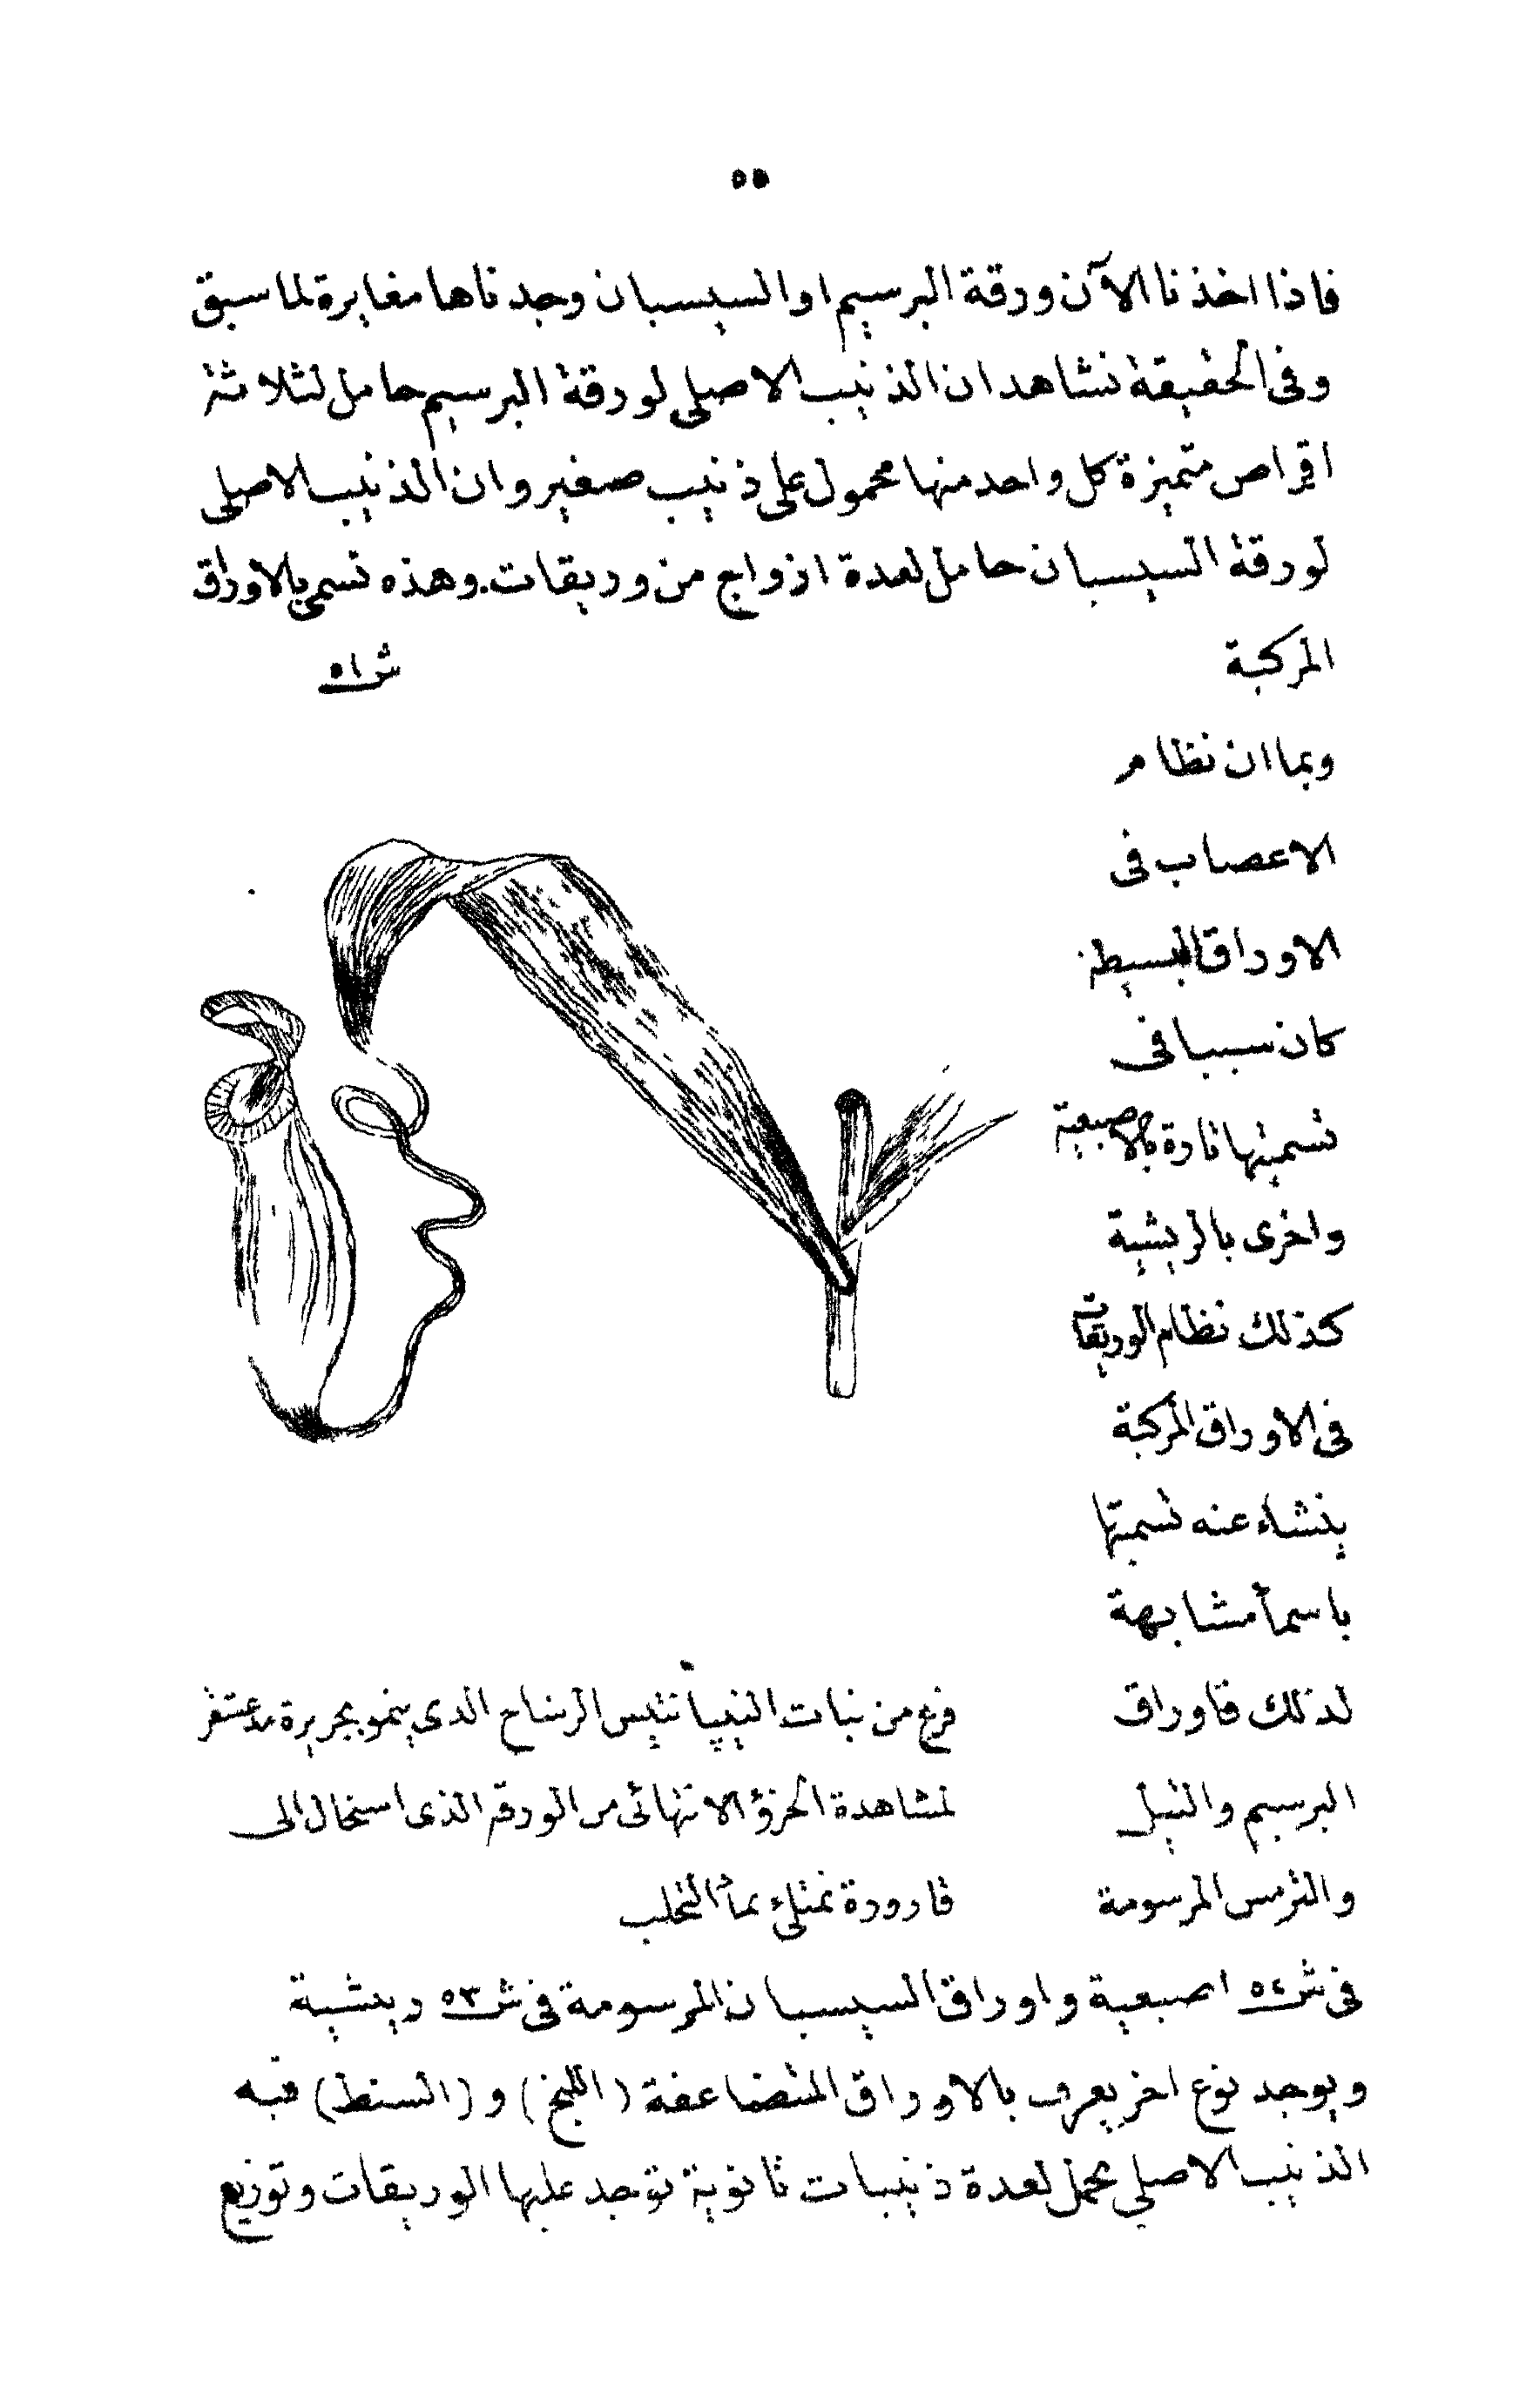 ٥٥
فاذا اخذنا الآن ورقة البرسيم او السيسبان وجدناها مغايرة لما سبق
وفى الحقيقة نشاهد ان الذنيب الاصلى لورقة البرسيم حامل لثلاثة
اقراص متميزة كل واحد منها محمول على ذنيب صغير وان الذنيب الاصلى
لورقة السيسبان حامل لعدة ازواج من وريقات. وهذه تسمى بالاوراق
المركبة
ش ٥١
وبما ان نظام
الاعصاب فى
الاوراق البسيطة
كان سببا فى
تسميتها تارة بالاصبعية
واخرى بالريشية
كذلك نظام الوريقات
فى الاوراق المركبة
ينشاء عنه تسميتها
باسمأ مشابهة
لذلك فاوراق
البرسيم والنيل
والترمس المرسومة
فرع من نبات النيبانتيس الرشاح الذى ينمو بجزيرة مدغشقر
لمشاهدة الجزؤ الانتهائى من الورقة الذى استحال الى
قارورة تمتلئ بمأ التحلب
فى ش ٥٢ اصبعية واوراق السيسبان المرسومة فى ش ٥٣ ريشية
ويوجد نوع اخر يعرف بالاوراق المتضاعفة (اللبخ) و (السنط) فيه
الذنيب الاصلى يحمل لعدة ذنيبات ثانوية توجد عليها الوريقات وتوزيع